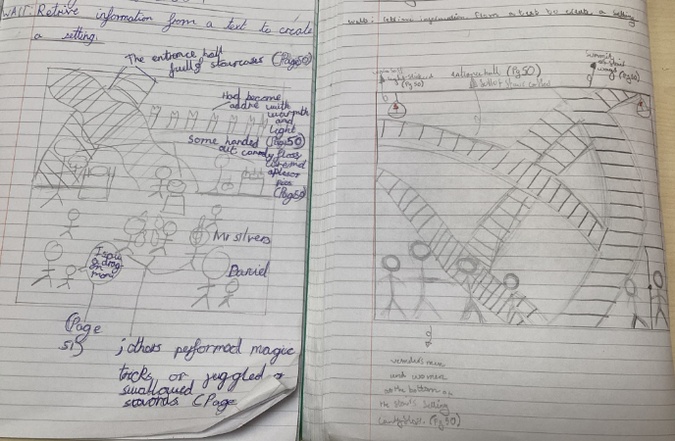 WALT: Retrive information from a text to create
a setting.
The entrance hall
full of staircases (Page 50)
Had become
alive with
warmth
and
light
(Page 50)
Some handed
out candy floss
or
pies
(Page 50)
Mr silver
Daniel
I spy
a drag
on
mom
(Page
51)
; others performed magic
tricks or juggled or
swallowed
swords (Page
WALT: Retrieve information from a text to create a setting
(Pg 50)
entrance hall (Pg 50)
full of stair cases
(Pg 50)
and women
at the bottom of
the stairs selling
candyfloss. (Pg 50)